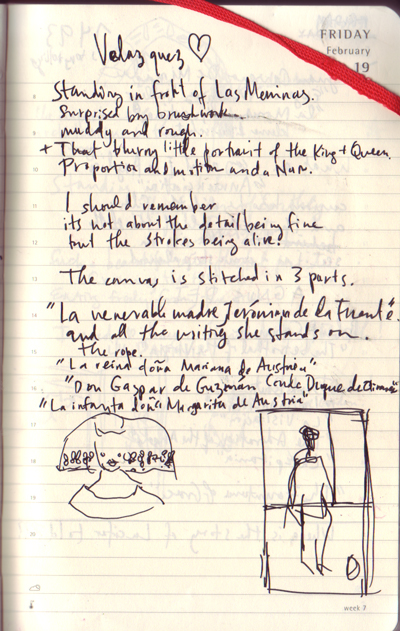 FRIDAY
February
19
Velazquez ♡
Standing in front of Las Meninas.
Surprised by brushwork.
muddy and rough.
+ That blurry little portrait of the King + Queen.
Proportion and motion and a Nun.
I should remember
its not about the detail being fine
but the strokes being alive!
The canvas is stitched in 3 parts.
"La venerable madre Jerónima de la Fuente"
and all the writing she stands on.
the rope.
"La reina doña Mariana de Austria"
"Don Gaspar de Guzmán Conde Duque de Olivares"
"La infanta doña Margarita de Austria"
8
9
10
11
12
13
14
15
16
17
18
19
20
week 7